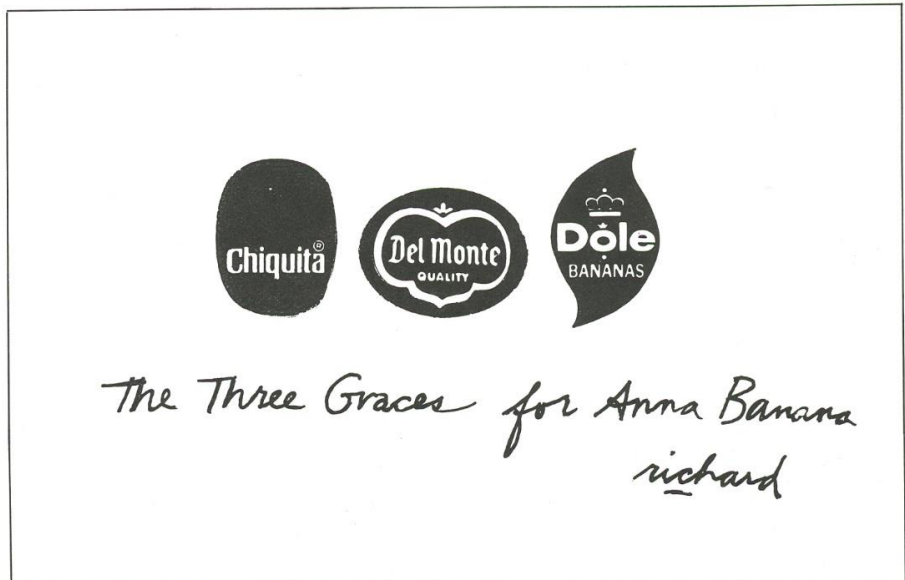 Chiquita®
Del Monte
QUALITY
Dole
BANANAS
The Three Graces for Anna Banana
richard